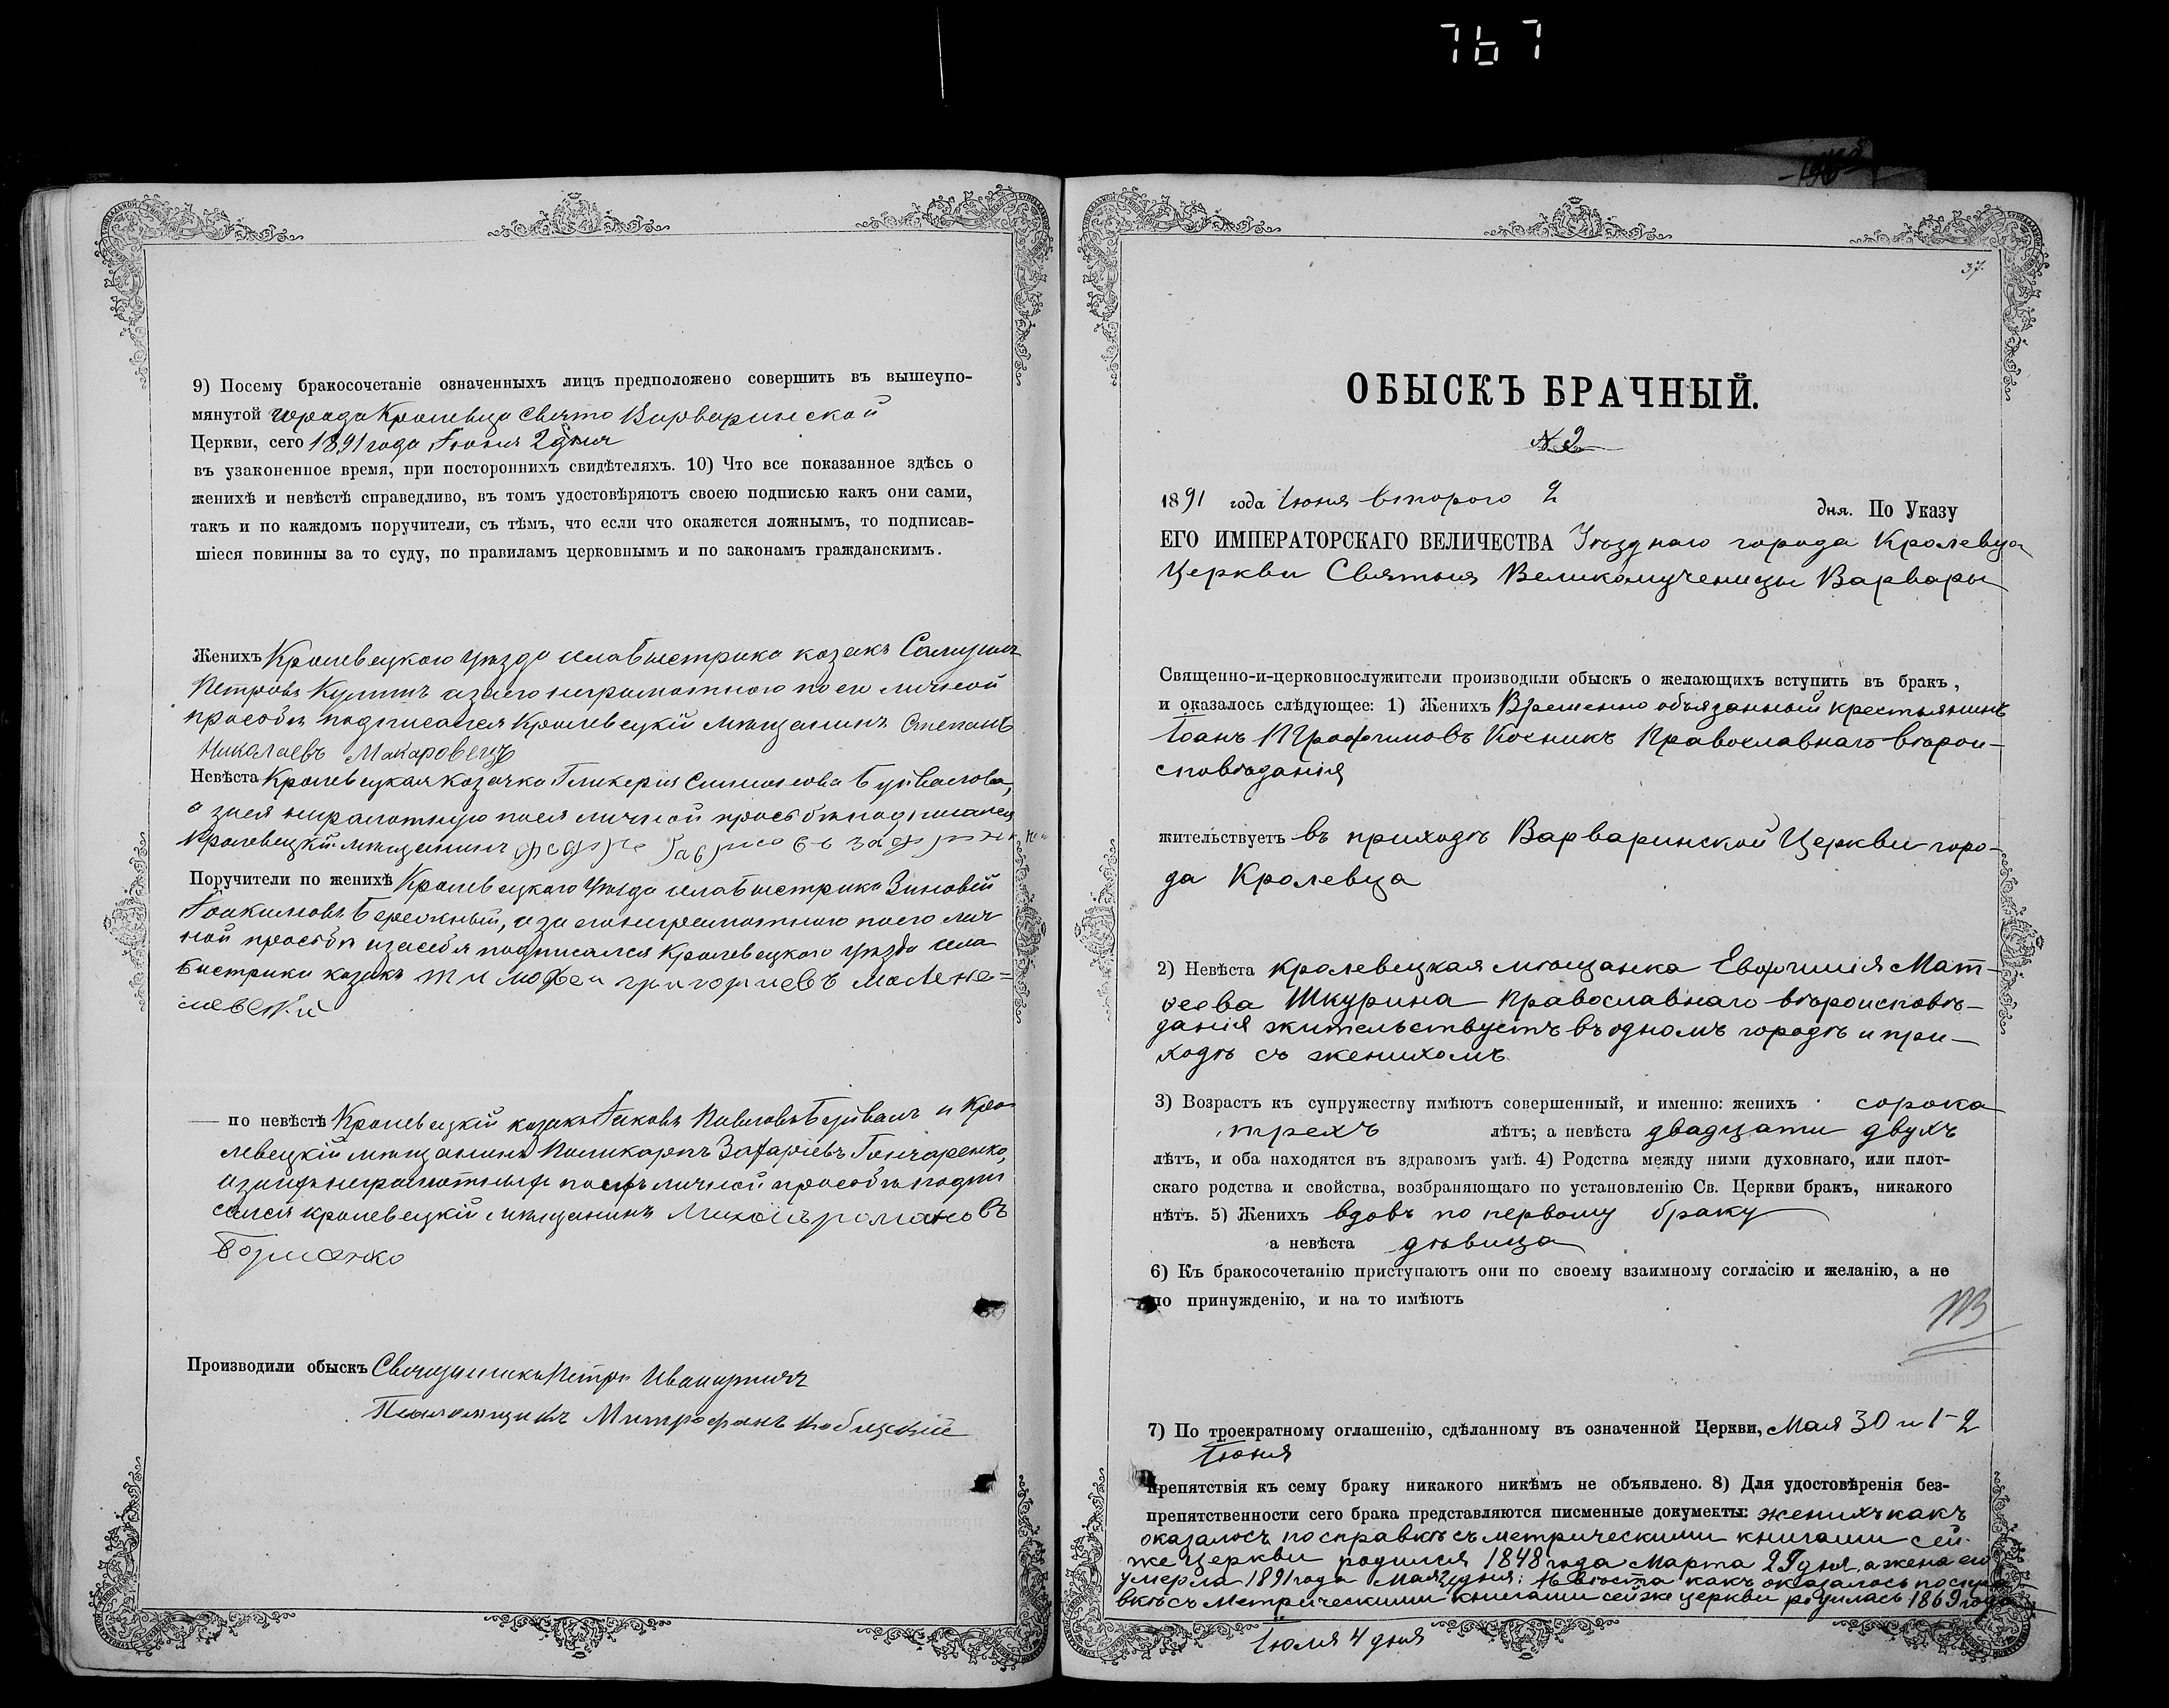 767
9) Посему бракосочетаніе означенныхъ лицъ предположено совершить въ вышеупо-
мянутой города Кролевца Свято Варваринской
Церкви, сего 1891 года Іюня 2 дня
въ узаконенное время, при постороннихъ свидѣтеляхъ. 10) Что все показанное здѣсь о
женихѣ и невѣстѣ справедливо, въ томъ удостовѣряютъ своею подписью какъ они сами,
такъ и по каждомъ поручители, съ тѣмъ, что если что окажется ложнымъ, то подписав-
шіеся повинны за то суду, по правиламъ церковнымъ и по законамъ гражданскимъ.
Женихъ Кролевецкого уѣзда села Быстрика козакъ Самуилъ
Петровъ а за его неграмотного по его личной
прозьбѣ подписался Кролевецкій мѣщанинъ Степанъ
Николаевъ Макаровецъ
Невѣста Кролевецкая козачка Гликерія
а за ея неграмотную по ея личной прозьбѣ подписался
Кролевецкій мѣщанинъ
Поручители по женихѣ Кролевецкого уѣзда села Быстрика Зиновій
Іоакимовъ Бережный, а за его неграмотного по его лич
ной прозьбѣ и за себя подписался Кролевецкого уѣзда села
Быстрики козакъ Тимофей григориевъ
— по невѣстѣ Кролевецкій козакъ Яковъ Павловъ и Кро
левецкій мѣщанинъ Поликарпъ Захаріевъ Гончаренко,
а за ихъ неграмотныхъ по ихъ личной прозьбѣ подпи
сался кролевецкій мѣщанинъ Михаилъ романовъ
Производили обыскъ Священникъ Петръ
Псаломщикъ Митрофанъ
37.
ОБЫСКЪ БРАЧНЫЙ.
№ 2
1891 года Іюня второго 2 дня. По Указу
ЕГО ИМПЕРАТОРСКАГО ВЕЛИЧЕСТВА Уѣзднаго города Кролевца
Церкви Святыя Великомученицы Варвары
Священно-и-церковнослужители производили обыскъ о желающихъ вступить въ бракъ,
и оказалось слѣдующее: 1) Женихъ Временно обязанный крестьянинъ
Іоанъ Трофимовъ Косникъ Православнаго вѣрои-
сповѣданія
жительствуетъ въ приходѣ Варваринской Церкви горо-
да Кролевца
2) Невѣста Кролевецкая мѣщанка Евфимія Мат-
ѳеева Шкурина Православнаго вѣроисповѣ-
данія жительствуетъ въ одномъ городѣ и при-
ходѣ съ женихомъ
3) Возрастъ къ супружеству имѣютъ совершенный, и именно: женихъ сорока
трехъ лѣтъ; а невѣста двадцати двухъ
лѣтъ, и оба находятся въ здравомъ умѣ. 4) Родства между ними духовнаго, или плот-
скаго родства и свойства, возбраняющаго по установленію Св. Церкви бракъ, никакого
нѣтъ. 5) Женихъ вдовъ по первому браку
а невѣста дѣвица
6) Къ бракосочетанію приступаютъ они по своему взаимному согласію и желанію, а не
по принужденію, и на то имѣютъ
7) По троекратному оглашенію, сдѣланному въ означенной Церкви, Мая 30 и 1-2
Іюня
препятствія къ сему браку никакого никѣмъ не объявлено. 8) Для удостовѣренія без-
препятственности сего брака представляются писменные документы: женихъ какъ
оказалось по справкѣ съ метрическими книгами сей
же Церкви родился 1848 года Марта 29 дня, а жена его
умерла 1891 года Мая дня: Невѣста какъ оказалось по спра-
вкѣ съ Метрическими книгами сей же церкви родилась 1869 года
Іюля 4 дня